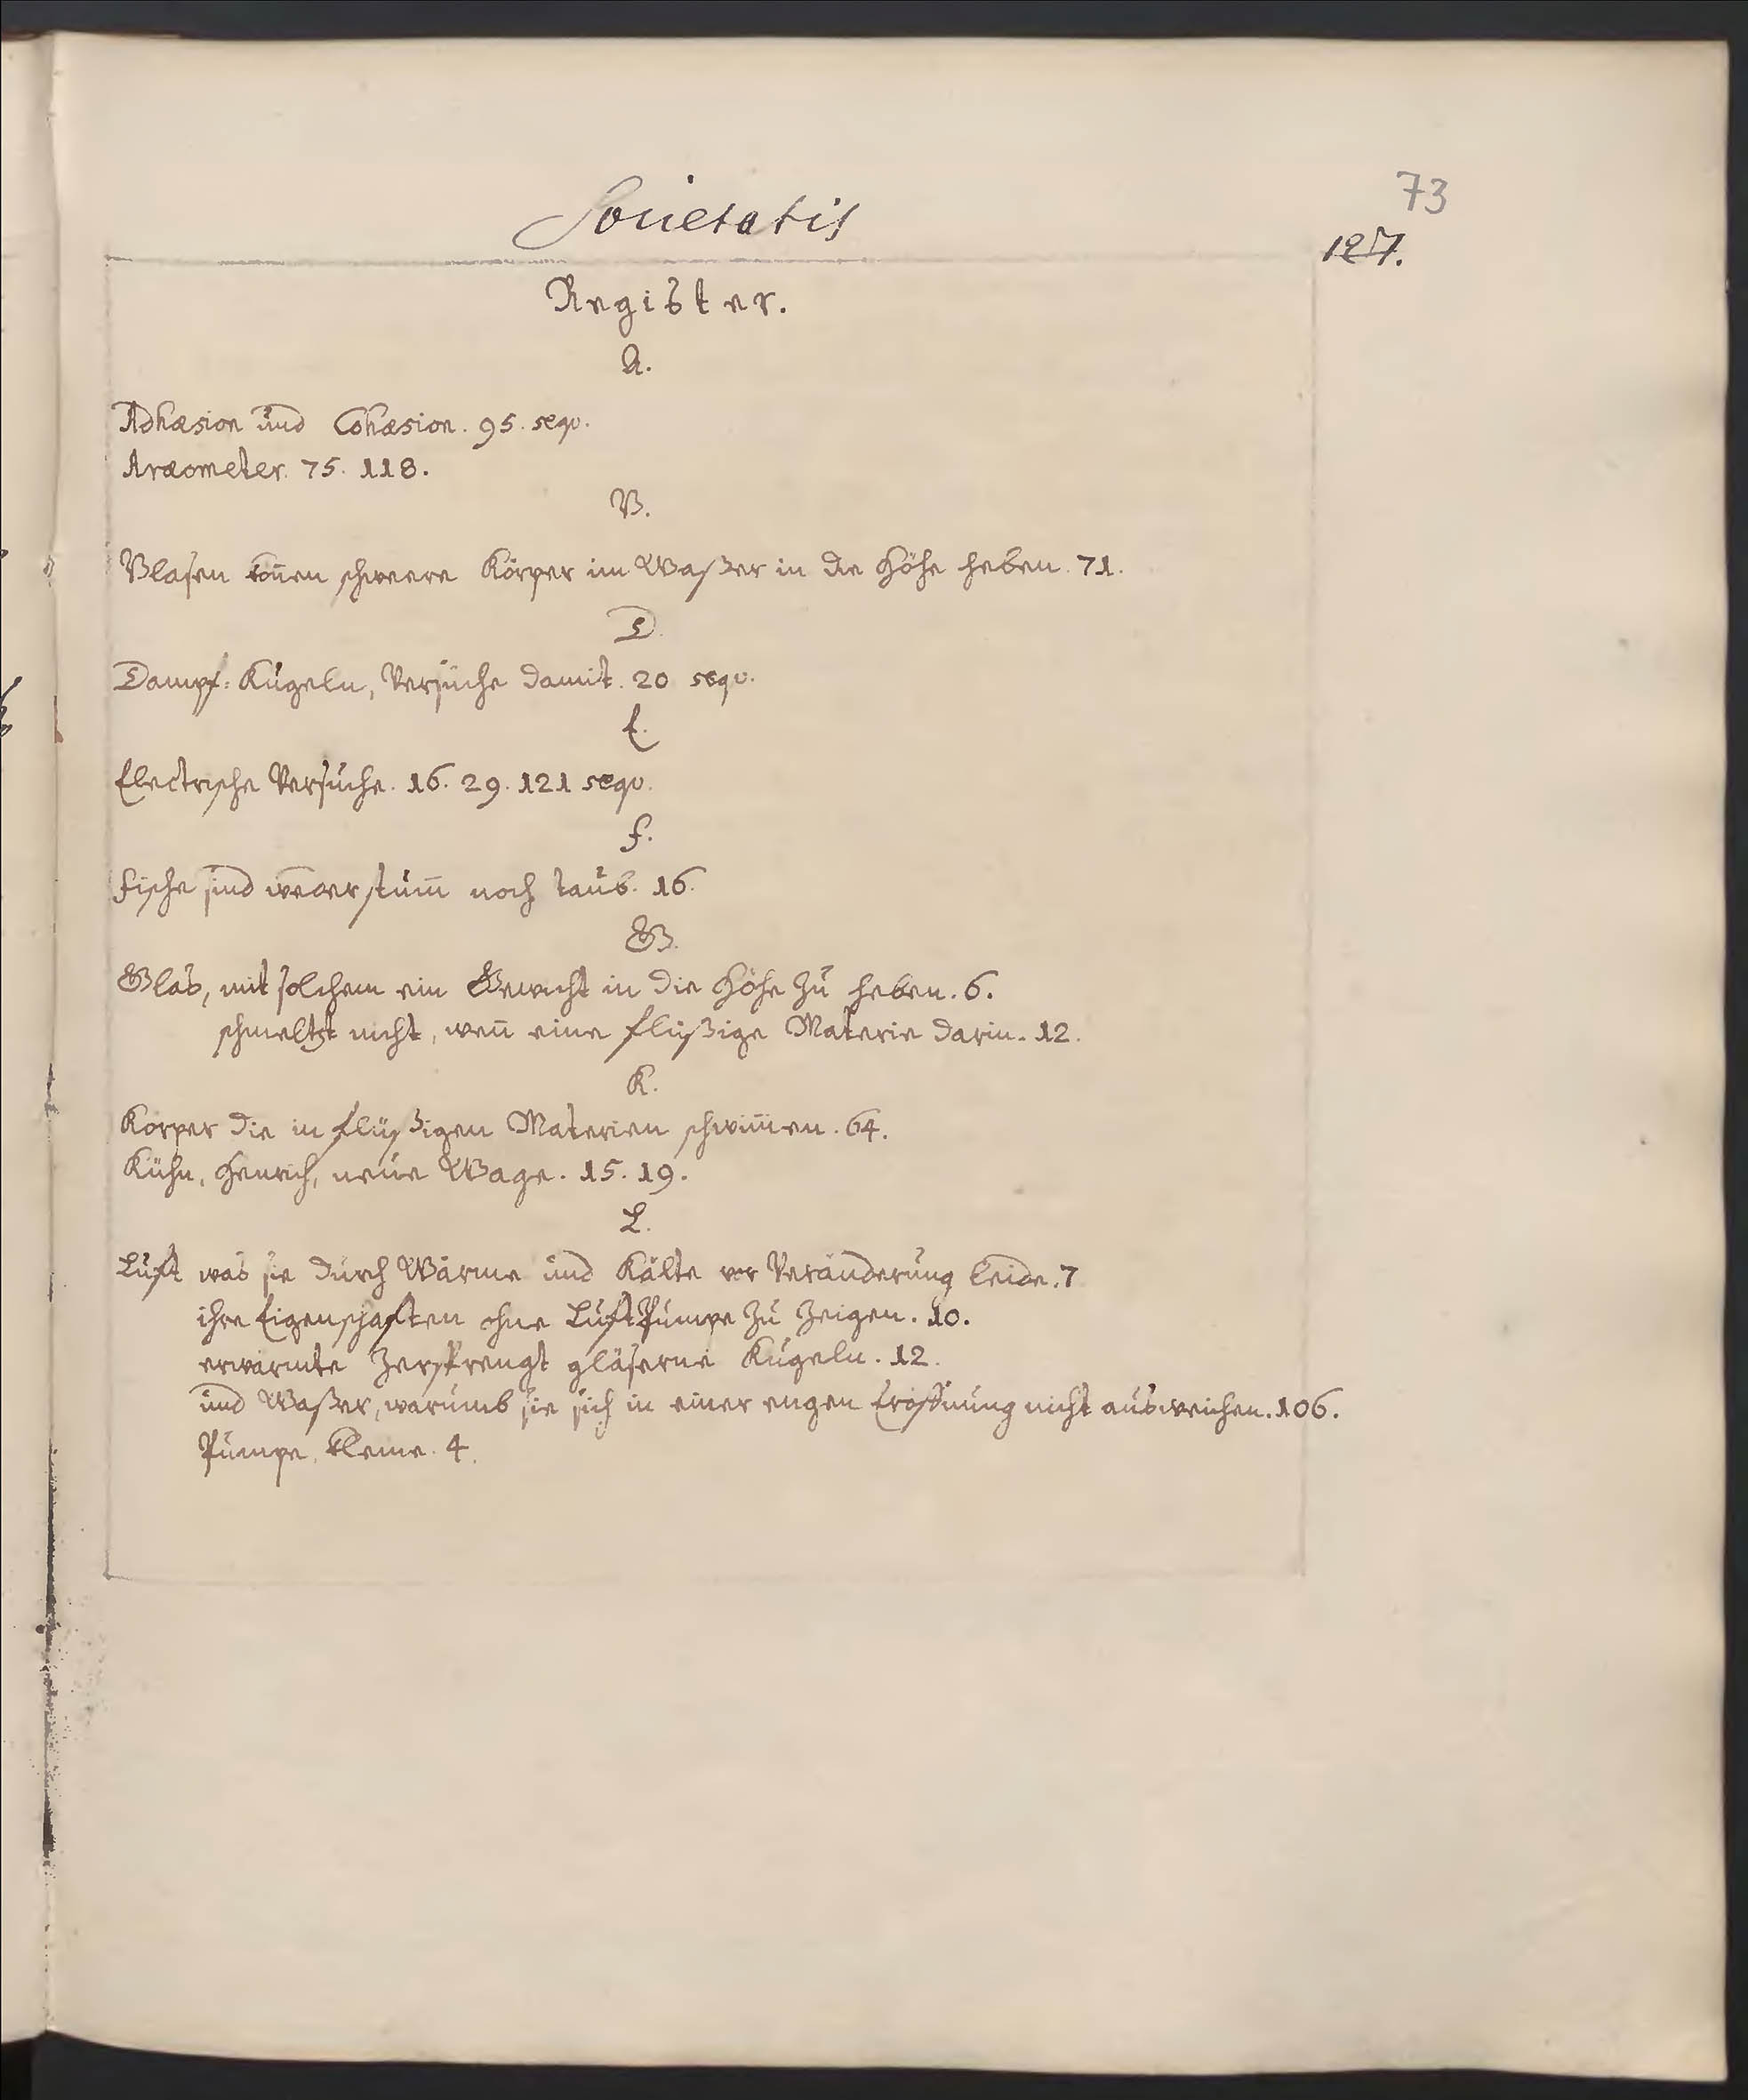 Societatis
73
127.
Register.
A.
Adhæsion und Cohæsion. 95. sequ.
Aræometer. 75. 118.
B.
Blasen kon̄en schweere Körper im Waßer in die Höhe heben. 71.
D.
Dampf-Kugeln, Versuche damit. 20 sequ.
E.
Electrische Versuche. 16. 29. 121 sequ.
F.
Fische sind weder stum̄ noch taub. 16.
G.
Glas, mit solchem ein Gewicht in die Höhe zu heben. 6.
schmeltzt nicht, wen̄ eine flüßige Materie darin. 12.
K.
Körper die in flüßigen Materien schwim̄en. 64.
Kühn, Henrich, neue Wage. 15. 19.
L.
Luft was sie durch Wärme und Kälte vor Veränderung leide. 7
ihre Eigenschaften ohne LuftPumpe zu zeigen. 10.
erwärmte zersprengt gläserne Kugeln. 12.
und Waßer, warumb sie sich in einer engen Eröffnung nicht ausweichen. 106.
Pumpe, kleine. 4.